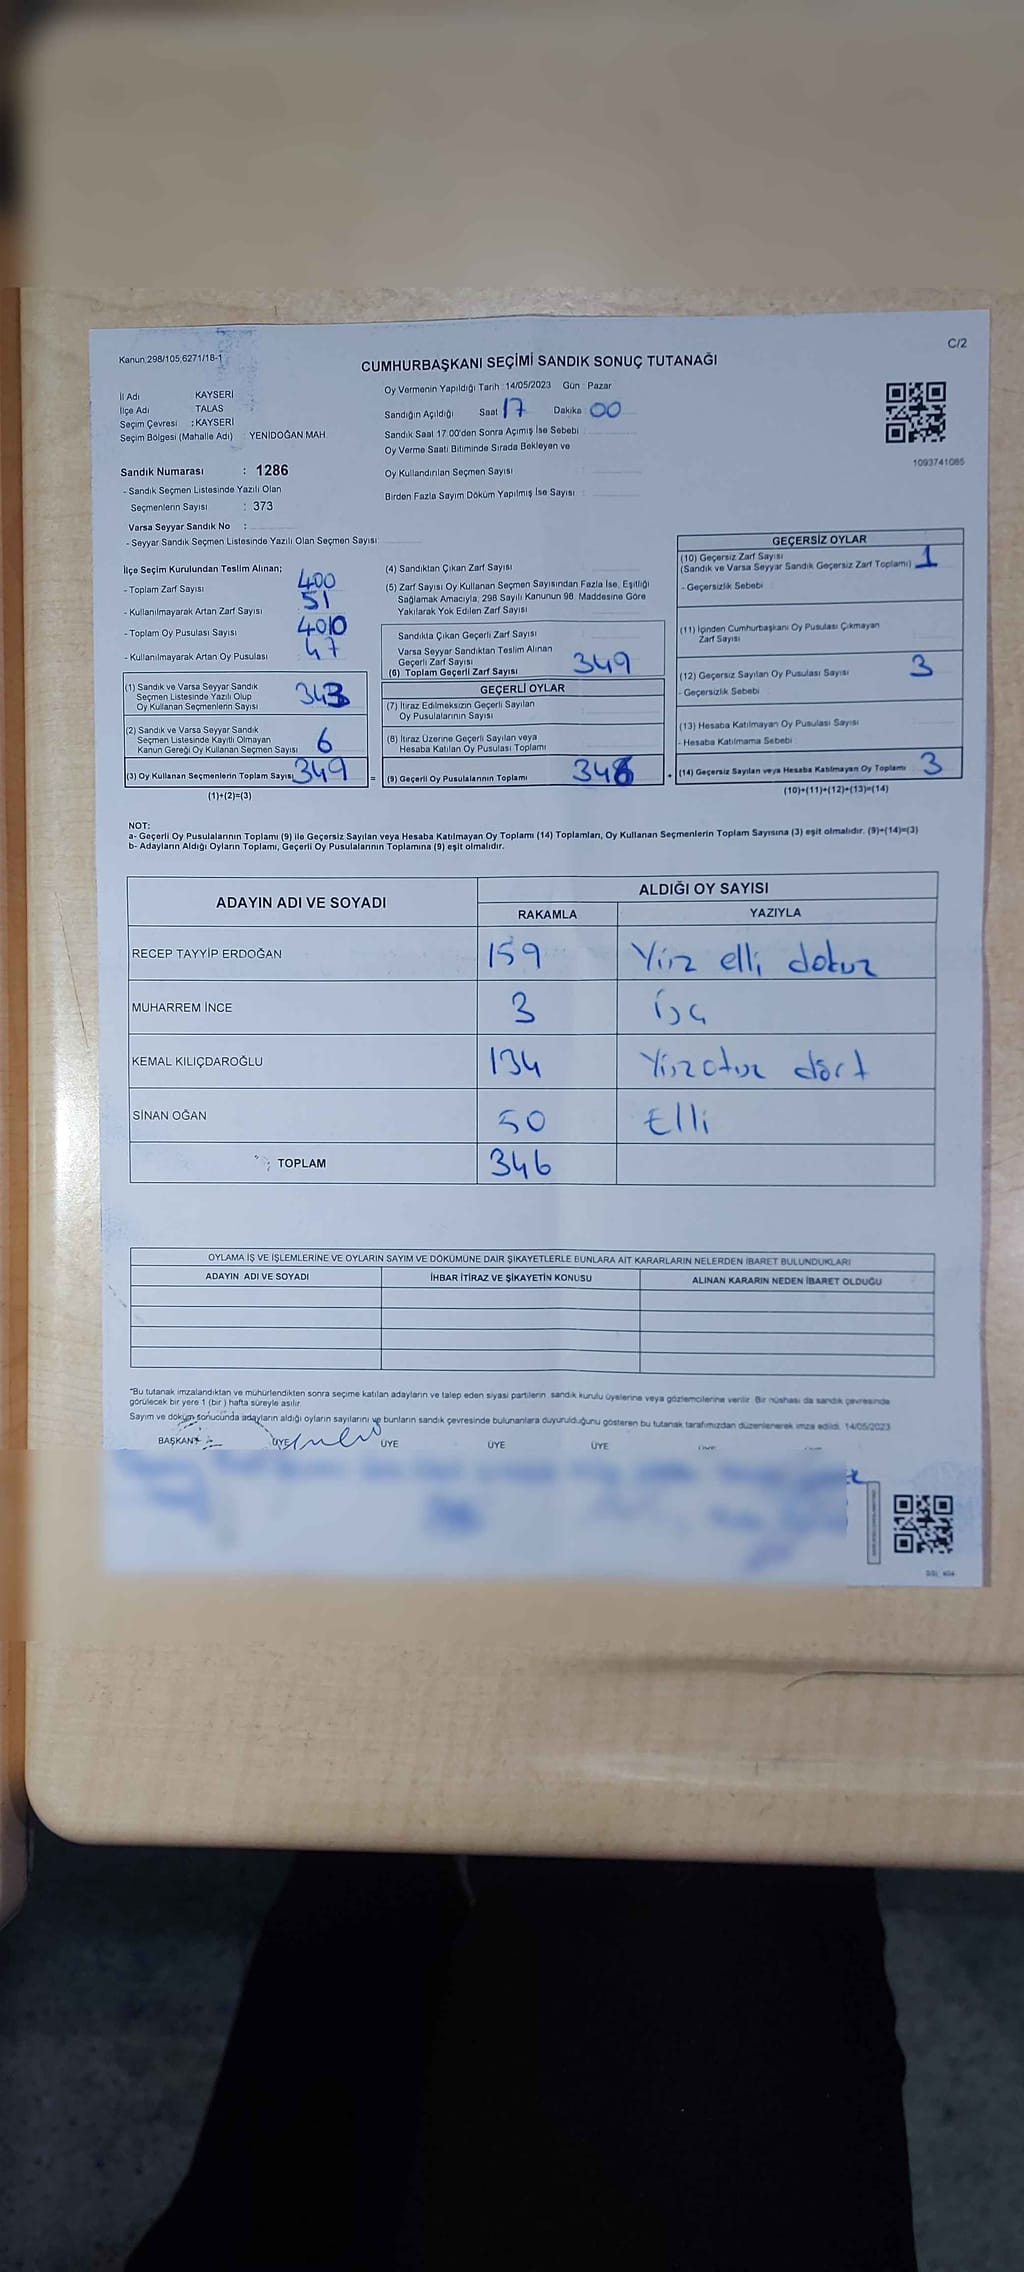 Kanun 298/105,6271/18-1
C/2
CUMHURBAŞKANI SEÇİMİ SANDIK SONUÇ TUTANAĞI
İl Adı KAYSERİ
İlçe Adı TALAS
Seçim Çevresi : KAYSERİ
Seçim Bölgesi (Mahalle Adı) : YENİDOĞAN MAH.
Sandık Numarası : 1286
- Sandık Seçmen Listesinde Yazılı Olan
Seçmenlerin Sayısı : 373
Varsa Seyyar Sandık No :
- Seyyar Sandık Seçmen Listesinde Yazılı Olan Seçmen Sayısı:
Oy Vermenin Yapıldığı Tarih : 14/05/2023 Gün : Pazar
Sandığın Açıldığı Saat 17 Dakika 00
Sandık Saat 17.00'den Sonra Açımış İse Sebebi :
Oy Verme Saati Bitiminde Sırada Bekleyen ve
Oy Kullandırılan Seçmen Sayısı
Birden Fazla Sayım Döküm Yapılmış İse Sayısı :
1093741085
İlçe Seçim Kurulundan Teslim Alınan;
- Toplam Zarf Sayısı 400
- Kullanılmayarak Artan Zarf Sayısı 51
- Toplam Oy Pusulası Sayısı
- Kullanılmayarak Artan Oy Pusulası 47
(1) Sandık ve Varsa Seyyar Sandık
Seçmen Listesinde Yazılı Olup
Oy Kullanan Seçmenlerin Sayısı 343
(2) Sandık ve Varsa Seyyar Sandık
Seçmen Listesinde Kayıtlı Olmayan
Kanun Gereği Oy Kullanan Seçmen Sayısı 6
(3) Oy Kullanan Seçmenlerin Toplam Sayısı 349
(1)+(2)=(3)
(4) Sandıktan Çıkan Zarf Sayısı
(5) Zarf Sayısı Oy Kullanan Seçmen Sayısından Fazla İse, Eşitliği
Sağlamak Amacıyla, 298 Sayılı Kanunun 98. Maddesine Göre
Yakılarak Yok Edilen Zarf Sayısı
Sandıkla Çıkan Geçerli Zarf Sayısı
Varsa Seyyar Sandıktan Teslim Alınan
Geçerli Zarf Sayısı
(6) Toplam Geçerli Zarf Sayısı 349
GEÇERLİ OYLAR
(7) İtiraz Edilmeksizin Geçerli Sayılan
Oy Pusulalarının Sayısı
(8) İtiraz Üzerine Geçerli Sayılan veya
Hesaba Katılan Oy Pusulası Toplamı
= (9) Geçerli Oy Pusulalarının Toplamı 346
GEÇERSİZ OYLAR
(10) Geçersiz Zarf Sayısı
(Sandık ve Varsa Seyyar Sandık Geçersiz Zarf Toplamı) 1
- Geçersizlik Sebebi
(11) İçinden Cumhurbaşkanı Oy Pusulası Çıkmayan
Zarf Sayısı
(12) Geçersiz Sayılan Oy Pusulası Sayısı 3
- Geçersizlik Sebebi
(13) Hesaba Katılmayan Oy Pusulası Sayısı
- Hesaba Katılmama Sebebi :
+ (14) Geçersiz Sayılan veya Hesaba Katılmayan Oy Toplamı 3
(10)+(11)+(12)+(13)=(14)
NOT:
a- Geçerli Oy Pusulalarının Toplamı (9) ile Geçersiz Sayılan veya Hesaba Katılmayan Oy Toplamı (14) Toplamları, Oy Kullanan Seçmenlerin Toplam Sayısına (3) eşit olmalıdır. (9)+(14)=(3)
b- Adayların Aldığı Oyların Toplamı, Geçerli Oy Pusulalarının Toplamına (9) eşit olmalıdır.
ADAYIN ADI VE SOYADI ALDIĞI OY SAYISI
RAKAMLA YAZIYLA
RECEP TAYYİP ERDOĞAN 159 Yüz elli dokuz
MUHARREM İNCE 3 Üç
KEMAL KILIÇDAROĞLU 134 Yüzotuz dört
SİNAN OĞAN 50 Elli
TOPLAM 346
OYLAMA İŞ VE İŞLEMLERİNE VE OYLARIN SAYIM VE DÖKÜMÜNE DAİR ŞİKAYETLERLE BUNLARA AİT KARARLARIN NELERDEN İBARET BULUNDUKLARI
ADAYIN ADI VE SOYADI İHBAR İTİRAZ VE ŞİKAYETİN KONUSU ALINAN KARARIN NEDEN İBARET OLDUĞU
*Bu tutanak imzalandıktan ve mühürlendikten sonra seçime katılan adayların ve talep eden siyasi partilerin sandık kurulu üyelerine veya gözlemcilerine verilir. Bir nüshası da sandık çevresinde
görülecek bir yere 1 (bir) hafta süreyle asılır.
Sayım ve döküm sonucunda adayların aldığı oyların sayılarını ve bunların sandık çevresinde bulunanlara duyurulduğunu gösteren bu tutanak tarafımızdan düzenlenerek imza edildi. 14/05/2023
BAŞKAN ÜYE ÜYE ÜYE ÜYE